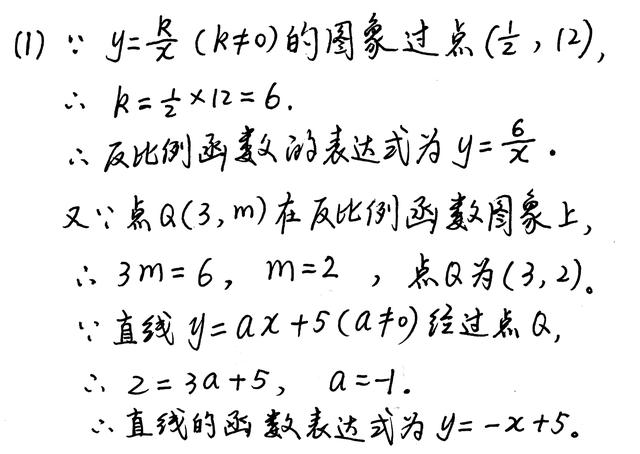 (1) ∵ y=k/x (k≠0)的图象过点(1/2, 12),
∴ k=1/2×12=6.
∴ 反比例函数的表达式为 y=6/x.
又∵点Q(3,m)在反比例函数图象上,
∴ 3m=6, m=2 , 点Q为(3,2)。
∵ 直线 y=ax+5(a≠0)经过点Q,
∴ 2=3a+5, a=-1.
∴直线的函数表达式为 y=-x+5。